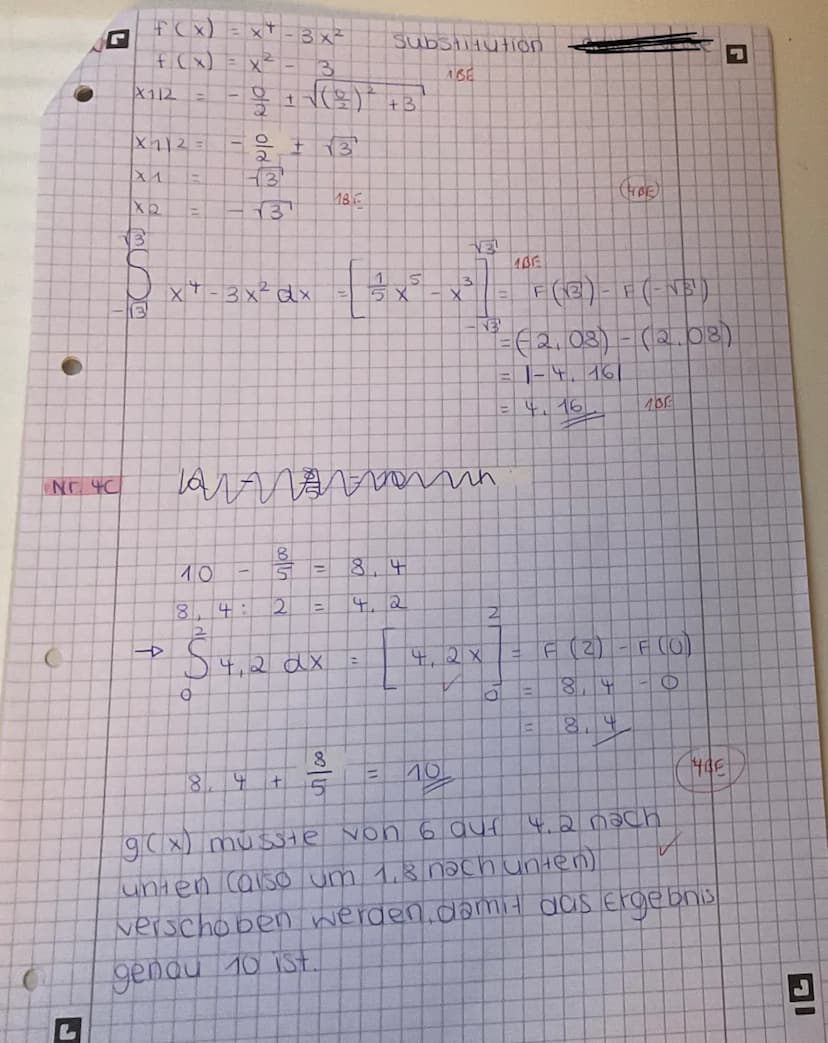 f(x) = x⁴ - 3x² Substitution
f(x) = x² - 3 1BE
x1/2 = - 0/2 ± √((0/2)² + 3)
x1/2 = - 0/2 ± √3
x1 = √3
x2 = - √3 1BE 4BE
∫_{-√3}^{√3} x⁴ - 3x² dx = [1/5 x⁵ - x³]_{-√3}^{√3} = F(√3) - F(-√3) 1BE
= (-2,08) - (2,08)
= |-4,16|
= 4,16 1BE
Nr. 4C
10 - 8/5 = 8,4
8,4 : 2 = 4,2
→ ∫_0^2 4,2 dx = [4,2x]_0^2 = F(2) - F(0) ✓
= 8,4 - 0
= 8,4
8,4 + 8/5 = 10 4BE
g(x) müsste von 6 auf 4,2 nach
unten (also um 1,8 nach unten) ✓
verschoben werden, damit das Ergebnis
genau 10 ist.